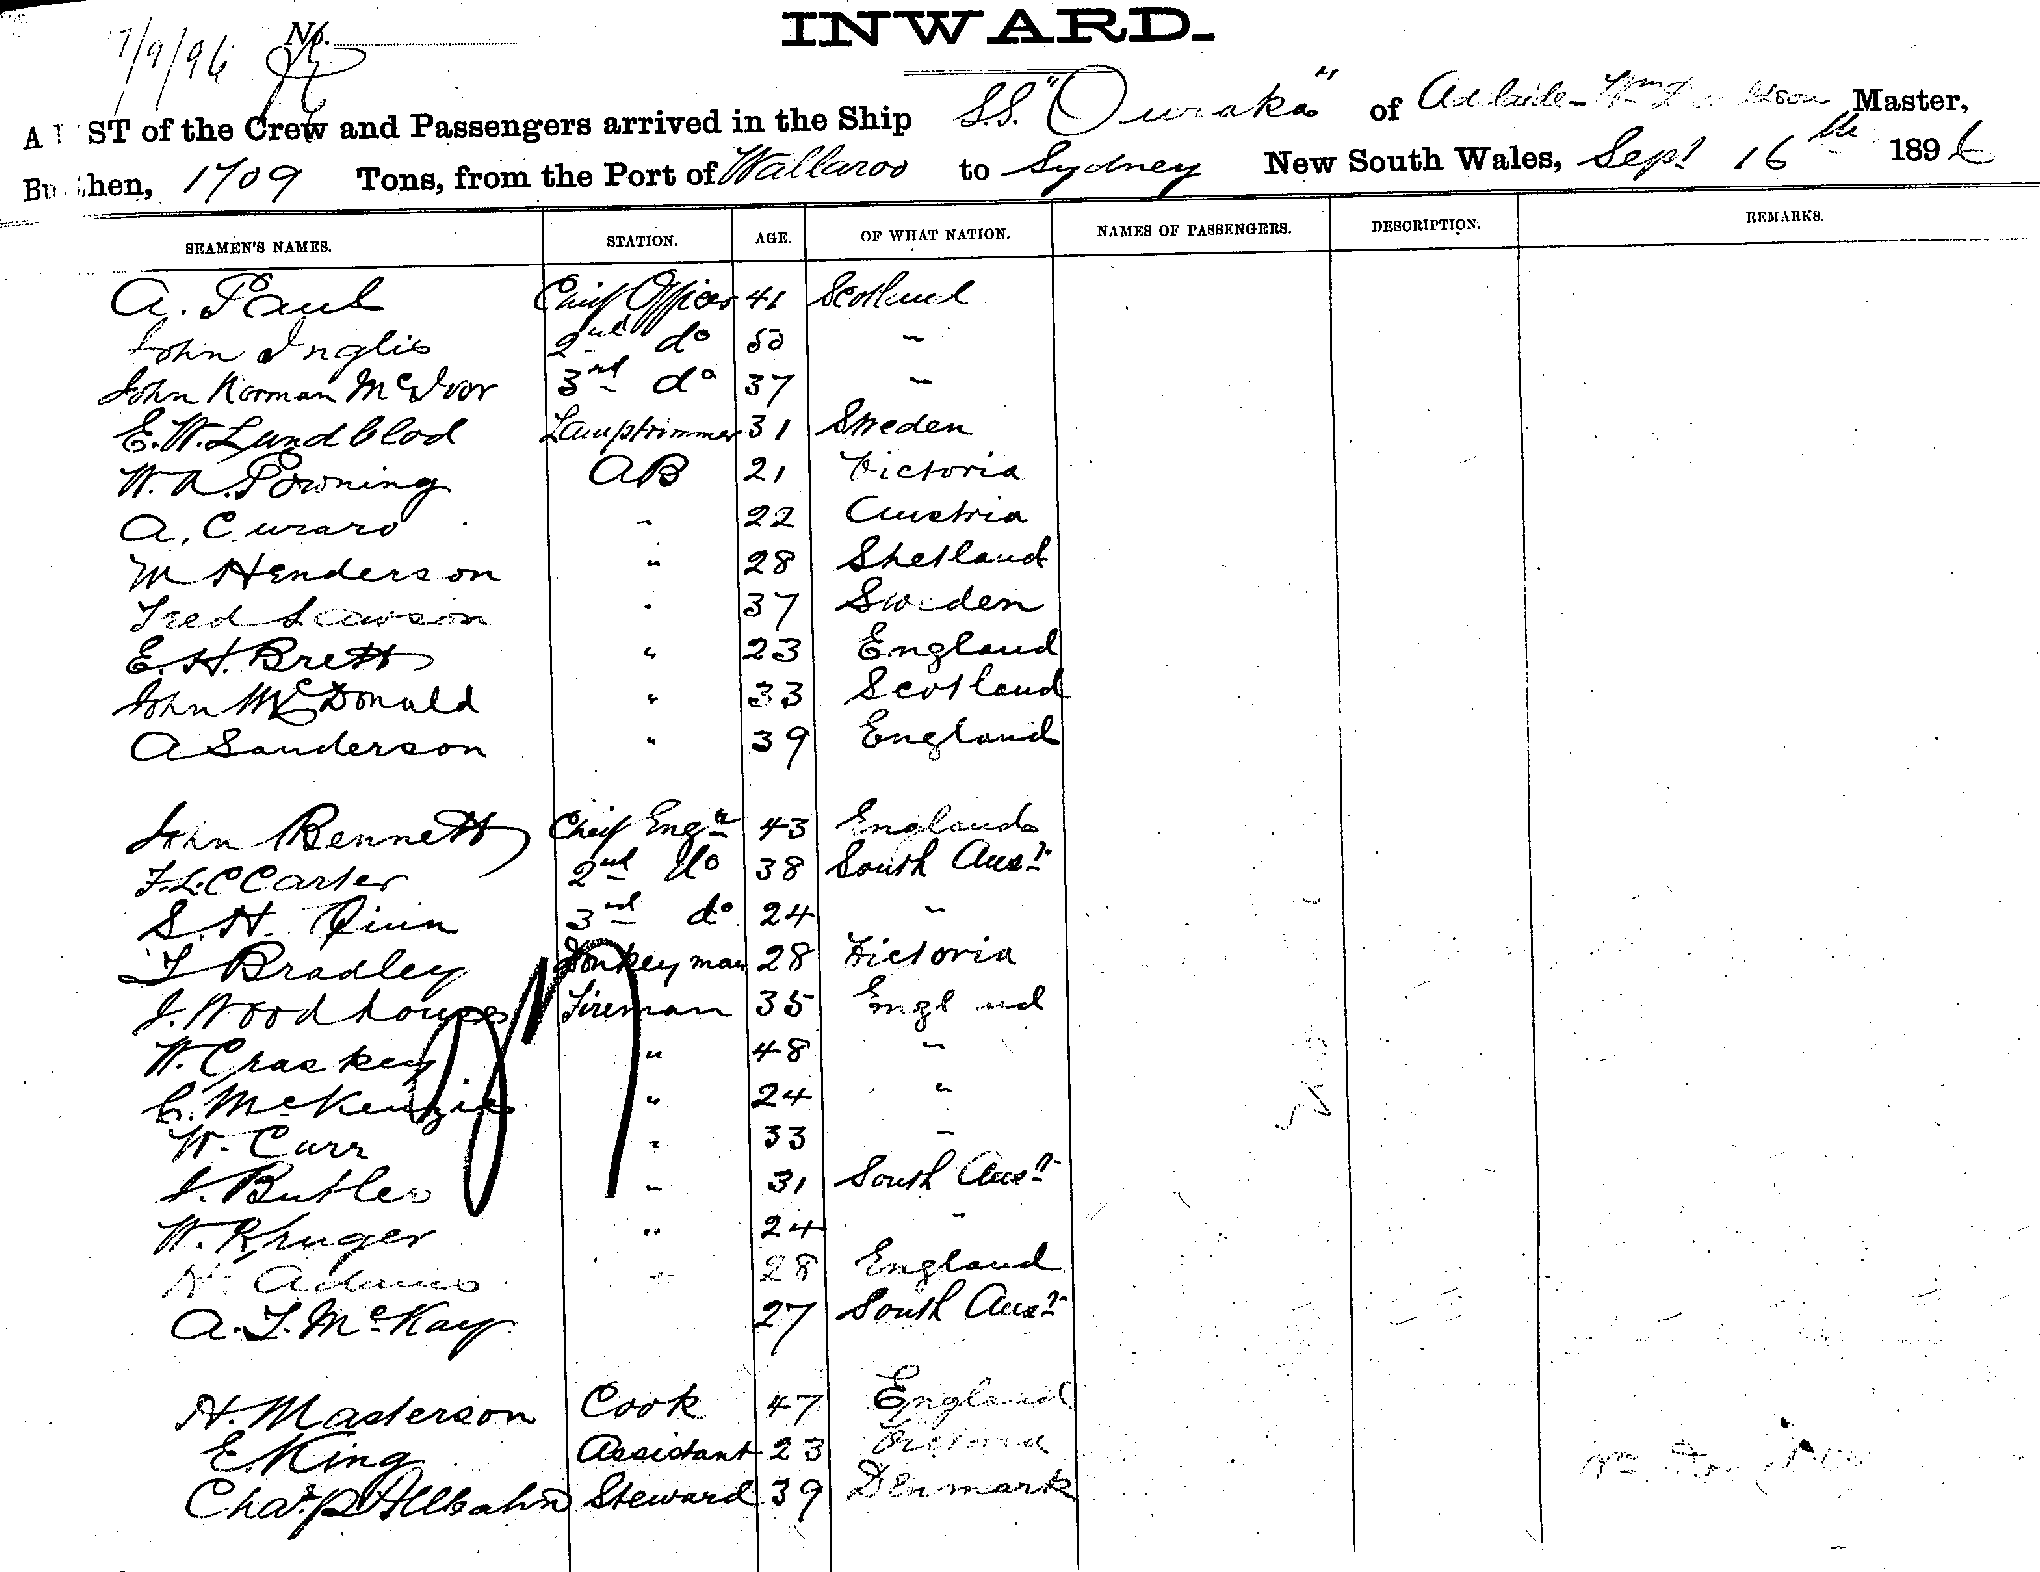 INWARD.
7/9/96 No.
A LIST of the Crew and Passengers arrived in the Ship S.S. "Ouraka" of Adelaide - Wm Master,
Burthen, 1709 Tons, from the Port of Wallaroo to Sydney New South Wales, Sept 16th 1896
SEAMEN'S NAMES. STATION. AGE. OF WHAT NATION. NAMES OF PASSENGERS. DESCRIPTION. REMARKS.
A. Paul Chief Officer 41 Scotland
John Inglis 2nd do 50 "
John Norman McIvor 3rd do 37 "
E. W. Lundblod Lamptrimmer 31 Sweden
W. A. Powning AB 21 Victoria
A. Curaro " 22 Austria
M Henderson " 28 Shetland
Fred Lawson " 37 Sweden
E. H. Brett " 23 England
John McDonald " 33 Scotland
A Sanderson " 39 England
John Bennett Chief Engr 43 England
F. L. C Carter 2nd do 38 South Ausn
S. H. Quin 3rd do 24 "
T Bradley Donkeyman 28 Victoria
J. Woodhouse Fireman 35 England
W. Craskey " 48 "
C. McKenzie " 24 "
W. Carr " 33 "
J. Butler " 31 South Ausn
W. Kruger " 24 "
H. Adams " 28 England
A. T. McKay 27 South Ausn
H. Masterson Cook 47 England
E. King Assistant 23 Victoria
Chas. P Allbahn Steward 39 Denmark
Wm